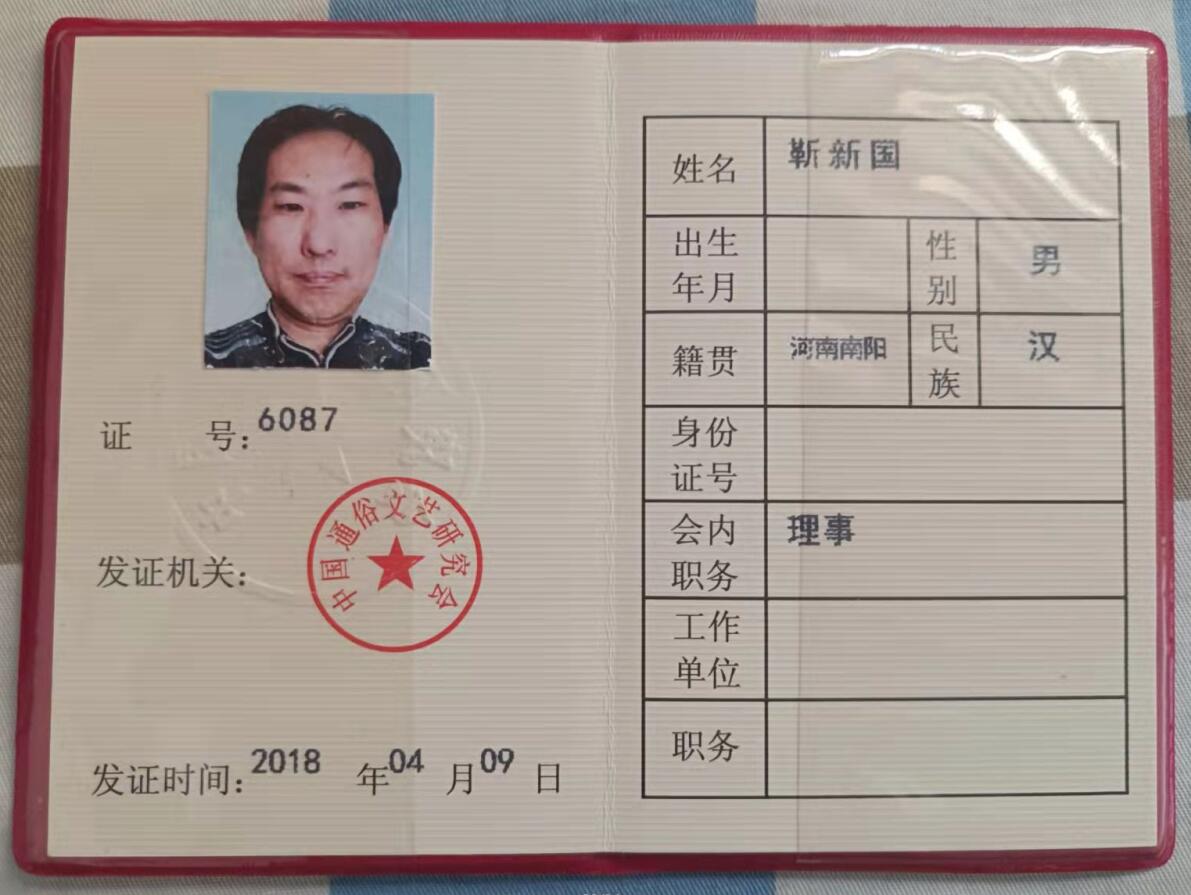 证 号:6087
中国通俗文艺研究会
发证机关:
发证时间:2018 年04 月09 日
姓名 靳新国
出生年月
性别 男
籍贯 河南南阳
民族 汉
身份证号
会内职务 理事
工作单位
职务